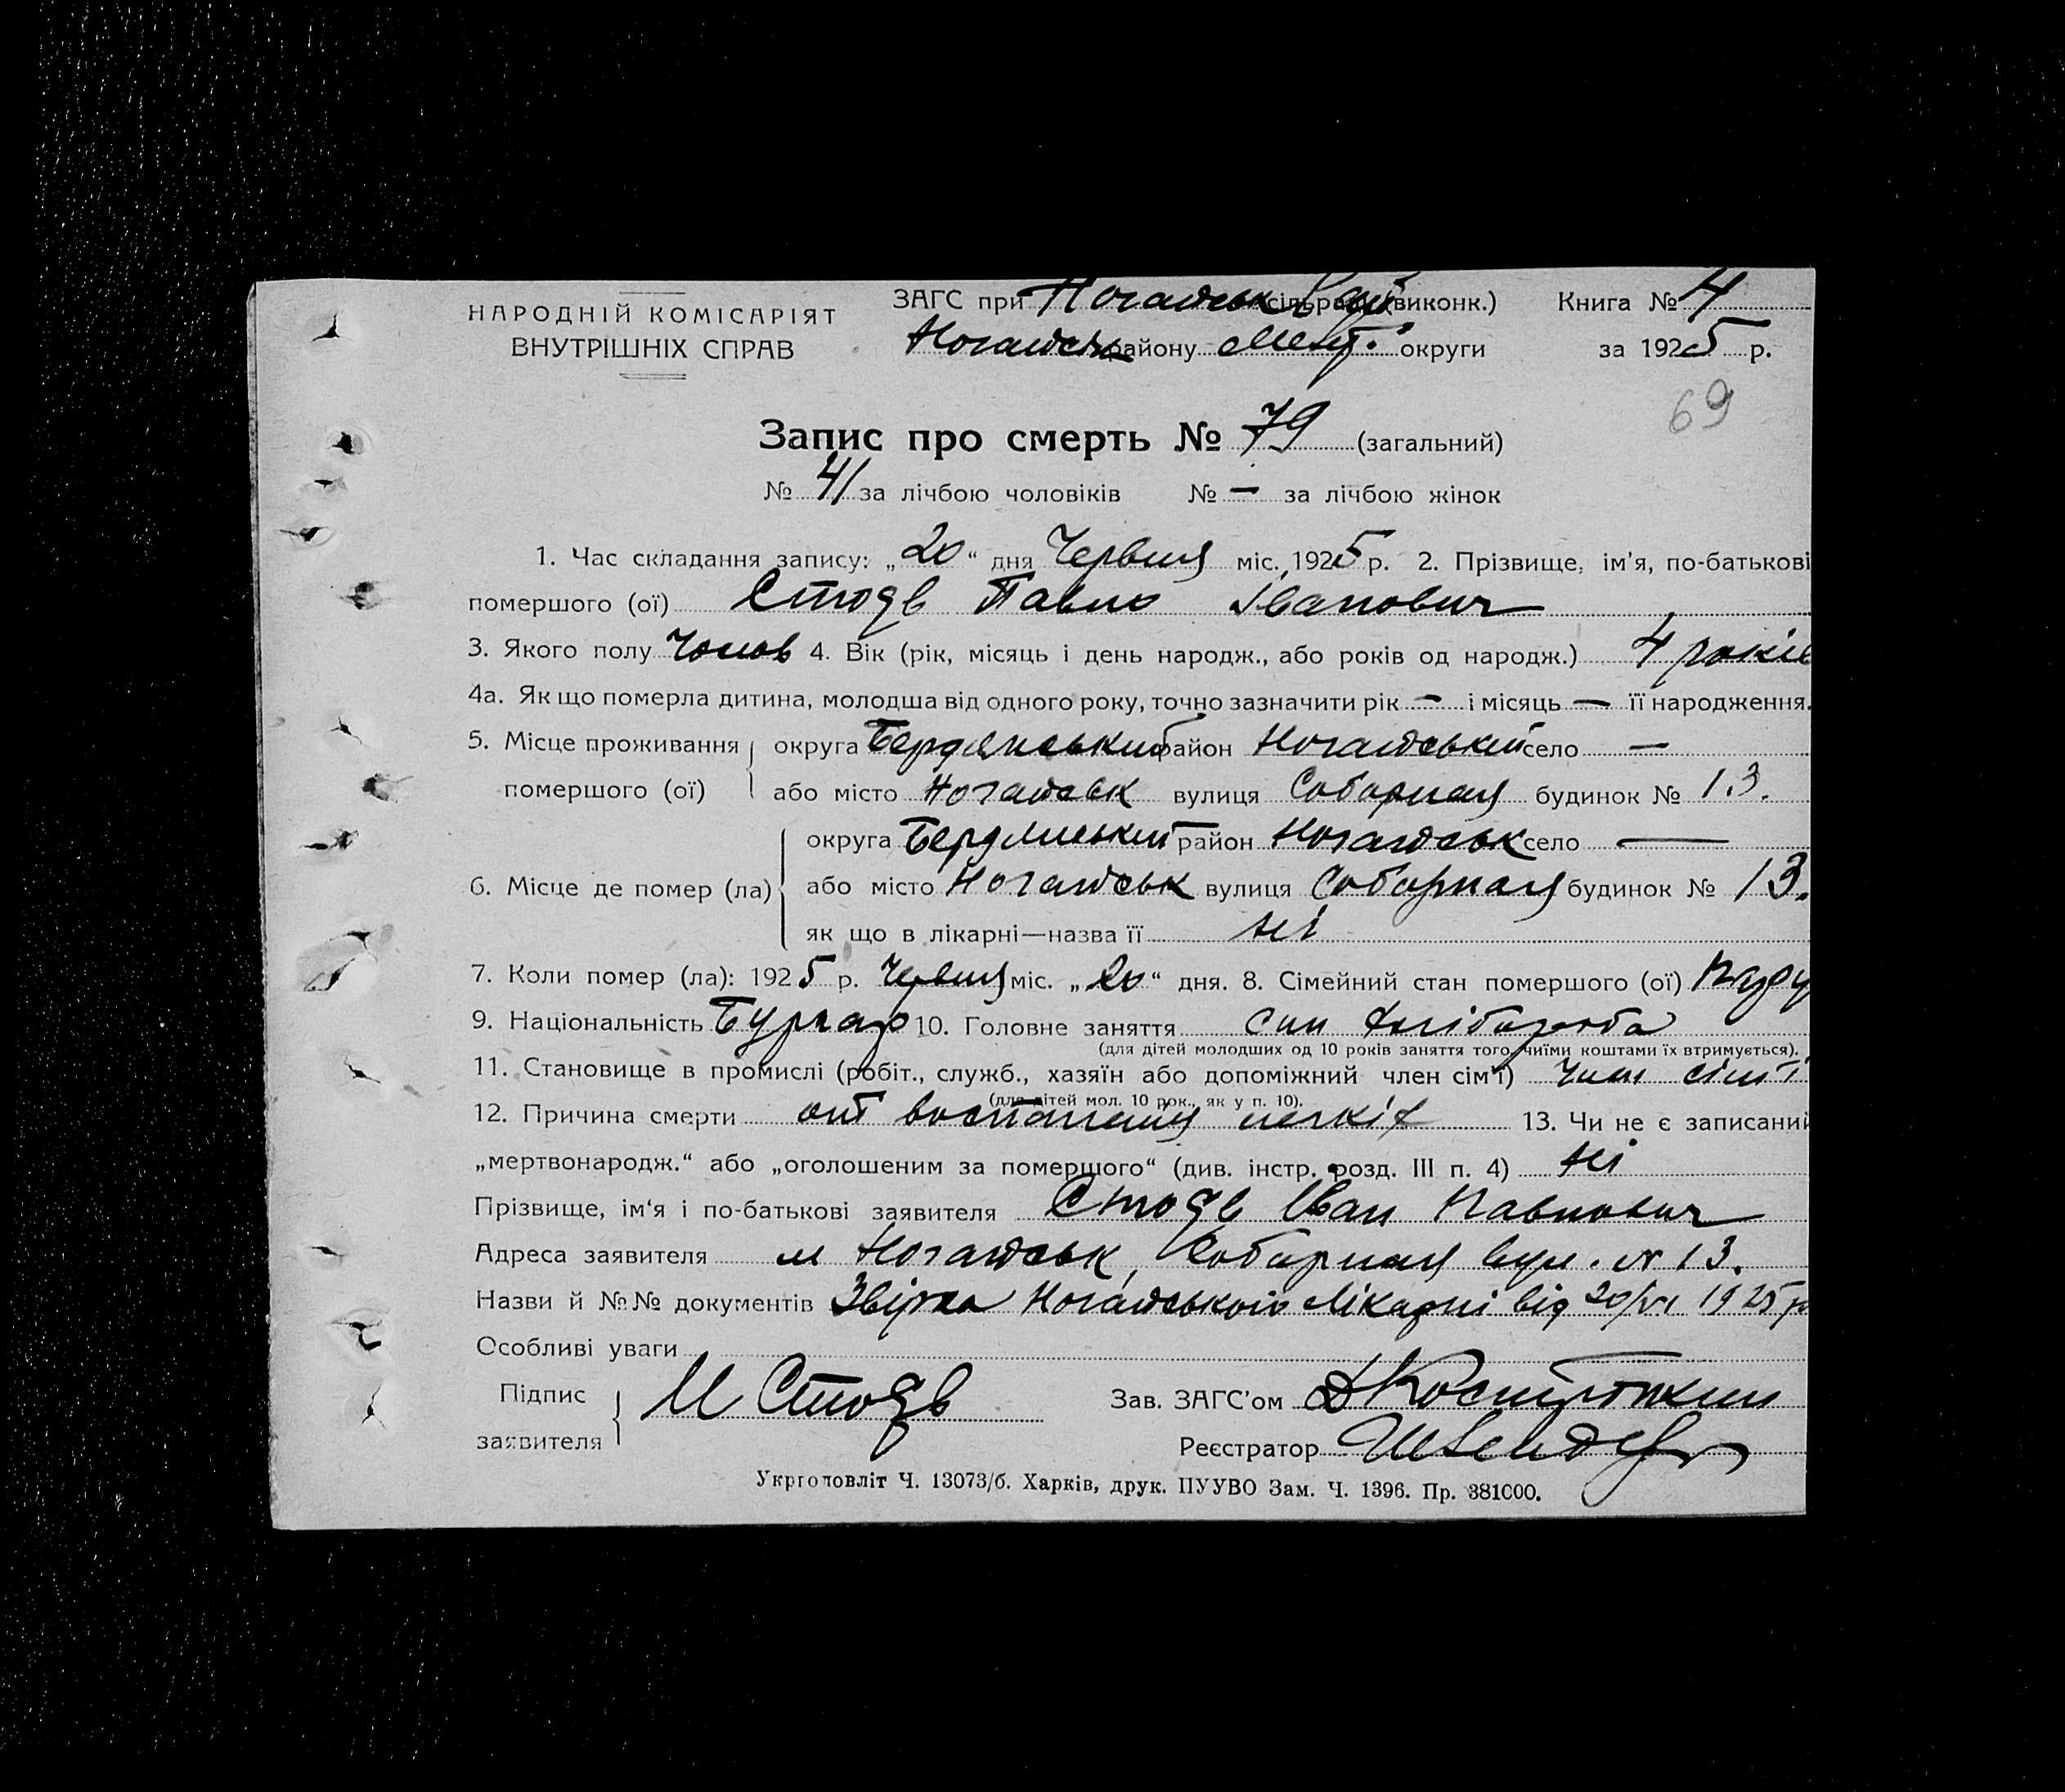 НАРОДНІЙ КОМІСАРІЯТ
ВНУТРІШНІХ СПРАВ
ЗАГС при Ногайськ сільради (виконк.) Книга № 4
Ногайськ району Меліт. округи за 1925 р.
69
Запис про смерть № 79 (загальний)
№ 41 за лічбою чоловіків № — за лічбою жінок
1. Час складання запису: „20“ дня Червня міс. 1925 р. 2. Прізвище, ім'я, по-батькові
помершого (ої) Стоєв Павло Іванович
3. Якого полу Чолов 4. Вік (рік, місяць і день народж., або років од народж.) 4 років
4а. Як що померла дитина, молодша від одного року, точно зазначити рік — і місяць — її народження.
5. Місце проживання округа Бердянський район Ногайський село —
помершого (ої) або місто Ногайськ вулиця Соборная будинок № 13.
округа Бердянський район Ногайськ село —
6. Місце де помер (ла) або місто Ногайськ вулиця Соборная будинок № 13.
як що в лікарні—назва її Ні
7. Коли помер (ла): 1925 р. Червня міс. „20“ дня. 8. Сімейний стан помершого (ої)
9. Національність Булгар 10. Головне заняття Син хлібороба
(для дітей молодших од 10 років заняття того, чиїми коштами їх втримується).
11. Становище в промислі (робіт., служб., хазяїн або допоміжний член сім'ї) Член сім'ї
(для дітей мол. 10 рок., як у п. 10).
12. Причина смерти от воспаления легкіх 13. Чи не є записаний
„мертвонародж.“ або „оголошеним за помершого“ (див. інстр. розд. III п. 4) Ні
Прізвище, ім'я і по-батькові заявителя Стоєв Іван Павлович
Адреса заявителя м Ногайськ, Соборная вул. № 13.
Назви й №№ документів Звістка Ногайської Лікарні від 20/VI 1925 р
Особливі уваги
Підпис
заявителя И Стоев
Зав. ЗАГС'ом
Реєстратор
Укрголовліт Ч. 13073/б. Харків, друк. ПУУВО Зам. Ч. 1396. Пр. 381000.